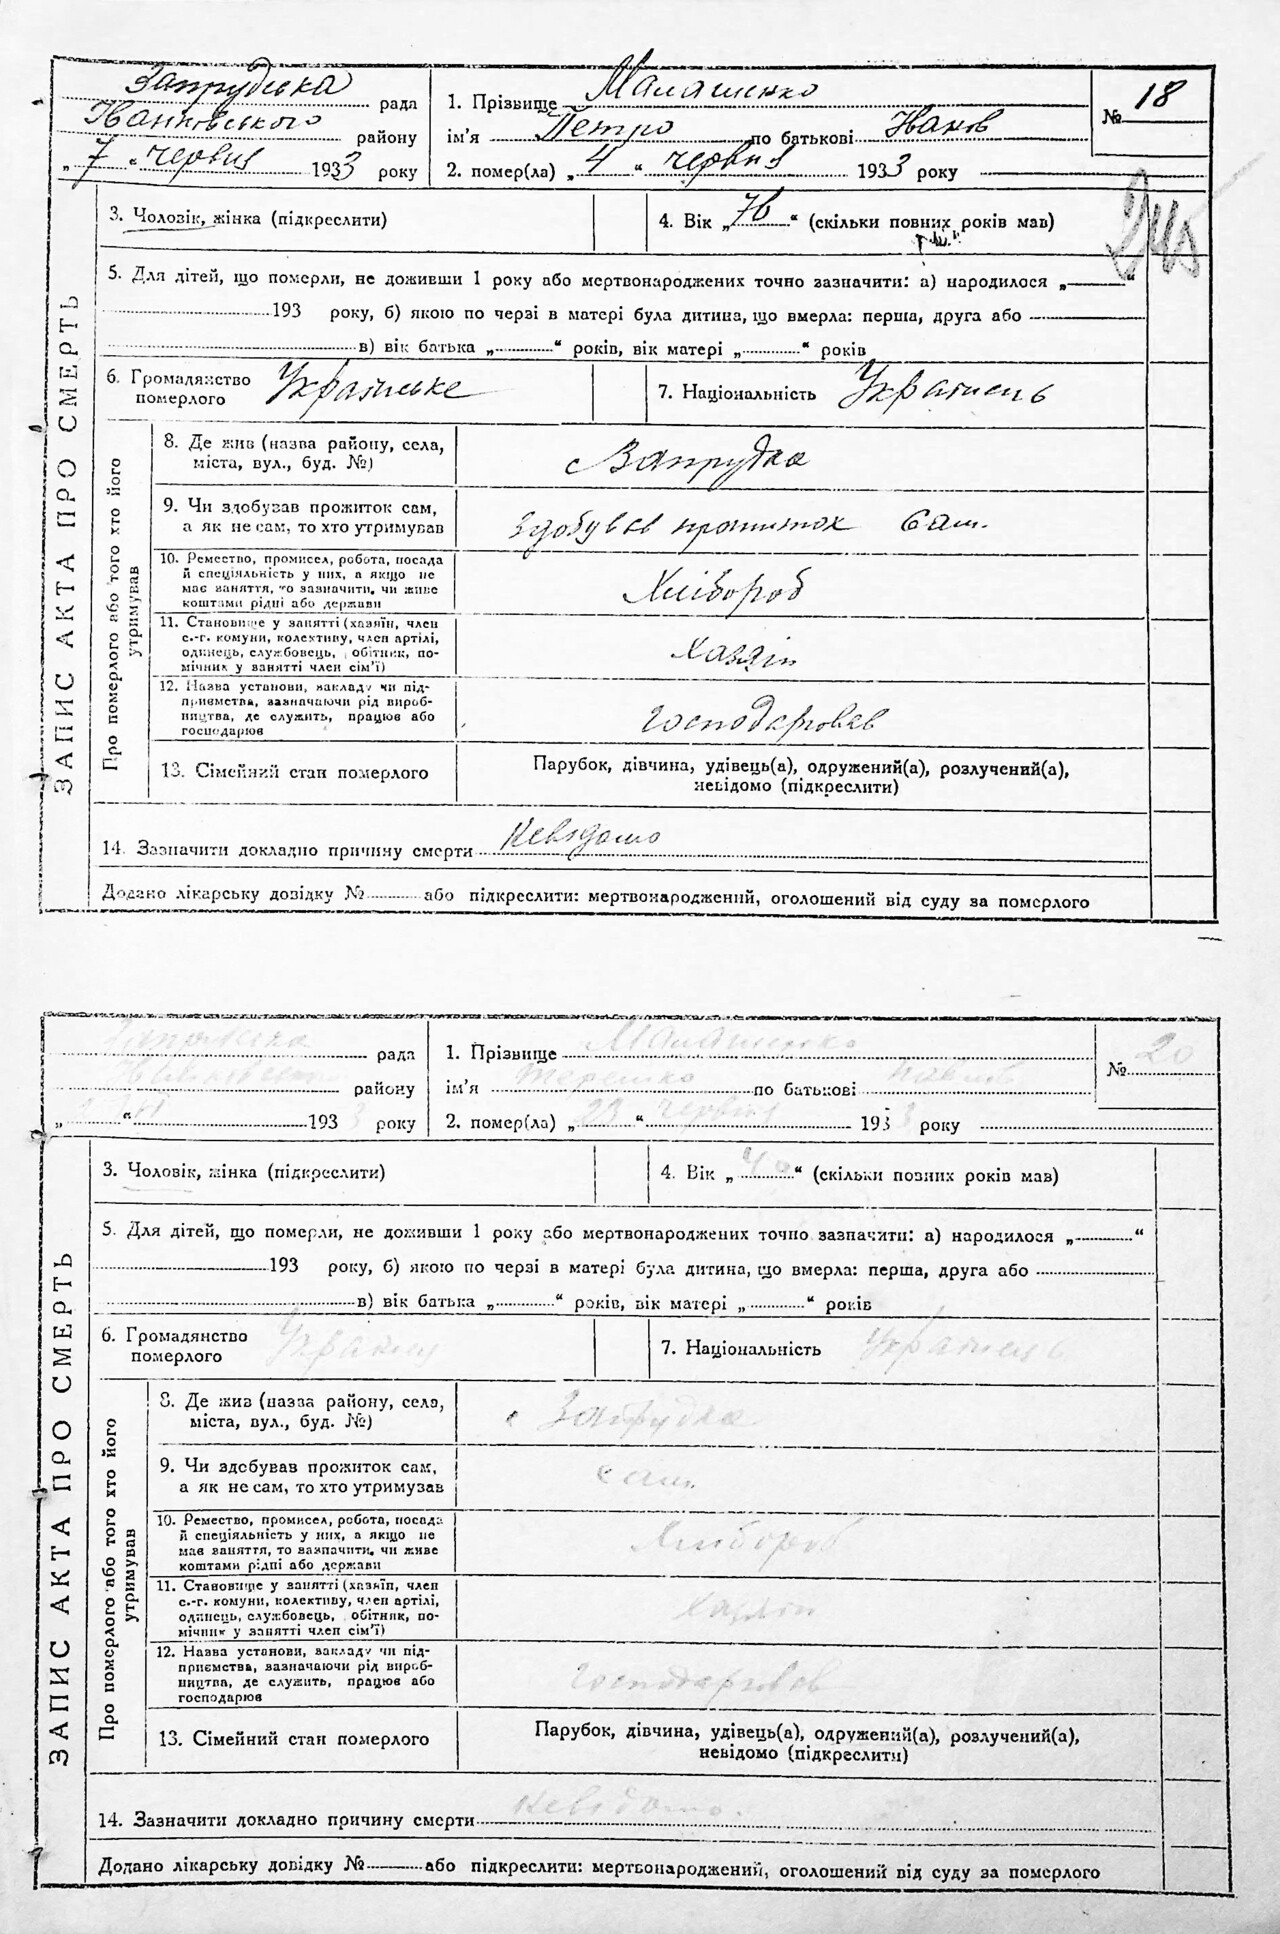 ЗАПИС АКТА ПРО СМЕРТЬ
Запрудська рада
Іванковського району
„7“ червня 1933 року
1. Прізвище Малашенко
ім'я Петро по батькові Іванов
2. помер(ла) „4“ червня 1933 року
№ 18
245
3. Чоловік, жінка (підкреслити)
4. Вік „76“ (скільки повних років мав)
5. Для дітей, що померли, не доживши 1 року або мертвонароджених точно зазначити: а) народилося „ “
193 року, б) якою по черзі в матері була дитина, що вмерла: перша, друга або
в) вік батька „ “ років, вік матері „ “ років
6. Громадянство померлого Українське
7. Національність Українець
Про померлого або того хто його утримував
8. Де жив (назва району, села,
міста, вул., буд. №)
с Запрудка
9. Чи здобував прожиток сам,
а як не сам, то хто утримував
Здобував прожиток сам.
10. Ремество, промисел, робота, посада
й спеціяльність у них, а якщо не
має заняття, то зазначити, чи живе
коштами рідні або держави
Хлібороб
11. Становище у занятті (хазяїн, член
с.-г. комуни, колективу, член артілі,
одинець, службовець, обітник, по-
мічник у занятті член сім'ї)
Хазяїн
12. Назва установи, закладу чи під-
приємства, зазначаючи рід вироб-
ництва, де служить, працює або
господарює
Господарював
13. Сімейний стан померлого
Парубок, дівчина, удівець(а), одружений(а), розлучений(а),
невідомо (підкреслити)
14. Зазначити докладно причину смерти Невідомо
Додано лікарську довідку № або підкреслити: мертвонароджений, оголошений від суду за померлого
ЗАПИС АКТА ПРО СМЕРТЬ
Запрудська рада
району
„ “ 1933 року
1. Прізвище Малашенко
ім'я Терешко по батькові Павлов
2. помер(ла) „23“ червня 1933 року
№ 20
3. Чоловік, жінка (підкреслити)
4. Вік „40“ (скільки повних років мав)
5. Для дітей, що померли, не доживши 1 року або мертвонароджених точно зазначити: а) народилося „ “
193 року, б) якою по черзі в матері була дитина, що вмерла: перша, друга або
в) вік батька „ “ років, вік матері „ “ років
6. Громадянство померлого
7. Національність Українець
Про померлого або того хто його утримував
8. Де жив (назва району, села,
міста, вул., буд. №)
с Запрудка
9. Чи здобував прожиток сам,
а як не сам, то хто утримував
сам.
10. Ремество, промисел, робота, посада
й спеціяльність у них, а якщо не
має заняття, то зазначити, чи живе
коштами рідні або держави
Хлібороб
11. Становище у занятті (хазяїн, член
с.-г. комуни, колективу, член артілі,
одинець, службовець, обітник, по-
мічник у занятті член сім'ї)
Хазяїн
12. Назва установи, закладу чи під-
приємства, зазначаючи рід вироб-
ництва, де служить, працює або
господарює
Господарював
13. Сімейний стан померлого
Парубок, дівчина, удівець(а), одружений(а), розлучений(а),
невідомо (підкреслити)
14. Зазначити докладно причину смерти Невідомо.
Додано лікарську довідку № або підкреслити: мертвонароджений, оголошений від суду за померлого